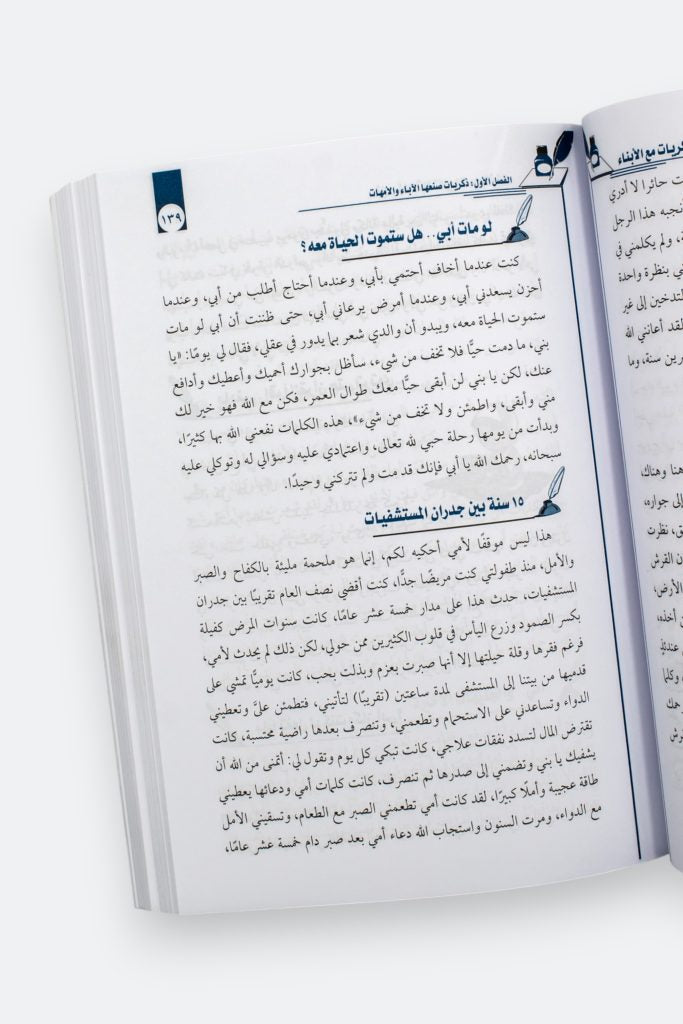 الفصل الأول: ذكريات صنعها الآباء والأمهات
١٣٩
لو مات أبي.. هل ستموت الحياة معه؟
كنت عندما أخاف أحتمي بأبي، وعندما أحتاج أطلب من أبي، وعندما
أحزن يسعدني أبي، وعندما أمرض يرعاني أبي، حتى ظننت أن أبي لو مات
ستموت الحياة معه، ويبدو أن والدي شعر بما يدور في عقلي، فقال لي يومًا: «يا
بني، ما دمت حيًّا فلا تخف من شيء، سأظل بجوارك أحميك وأعطيك وأدافع
عنك، لكن يا بني لن أبقى حيًّا معك طوال العمر، فكن مع الله فهو خير لك
مني وأبقى، واطمئن ولا تخف من شيء»، هذه الكلمات نفعني الله بها كثيرًا،
وبدأت من يومها رحلة حبي لله تعالى، واعتمادي عليه وسؤالي له وتوكلي عليه
سبحانه، رحمك الله يا أبي فإنك قد مت ولم تتركني وحيدًا.
١٥ سنة بين جدران المستشفيات
هذا ليس موقفًا لأمي أحكيه لكم، إنما هو ملحمة مليئة بالكفاح والصبر
والأمل، منذ طفولتي كنت مريضًا جدًّا، كنت أقضي نصف العام تقريبًا بين جدران
المستشفيات، حدث هذا على مدار خمسة عشر عامًا، كانت سنوات المرض كفيلة
بكسر الصمود وزرع اليأس في قلوب الكثيرين ممن حولي، لكن ذلك لم يحدث لأمي،
فرغم فقرها وقلة حيلتها إلا أنها صبرت بعزم وبذلت بحب، كانت يوميًّا تمشي على
قدميها من بيتنا إلى المستشفى لمدة ساعتين (تقريبًا) لتأتيني، فتطمئن عليَّ وتعطيني
الدواء وتساعدني على الاستحمام وتطعمني، وتنصرف بعدها راضية محتسبة، كانت
تقترض المال لتسدد نفقات علاجي، كانت تبكي كل يوم وتقول لي: أتمنى من الله أن
يشفيك يا بني وتضمني إلى صدرها ثم تنصرف، كانت كلمات أمي ودعائها يعطيني
طاقة عجيبة وأملًا كبيرًا، لقد كانت أمي تطعمني الصبر مع الطعام، وتسقيني الأمل
مع الدواء، ومرت السنون واستجاب الله دعاء أمي بعد صبر دام خمسة عشر عامًا،
مع الأبناء
حائرا لا أدري
نجبه هذا الرجل
ولم يكلمني في
بنظرة واحدة
لتدخين إلى غير
لقد أعانني الله
سنة، وما
هنا وهناك،
إلى جواره،
نظرت
الفرش
الأرض،
أخذه،